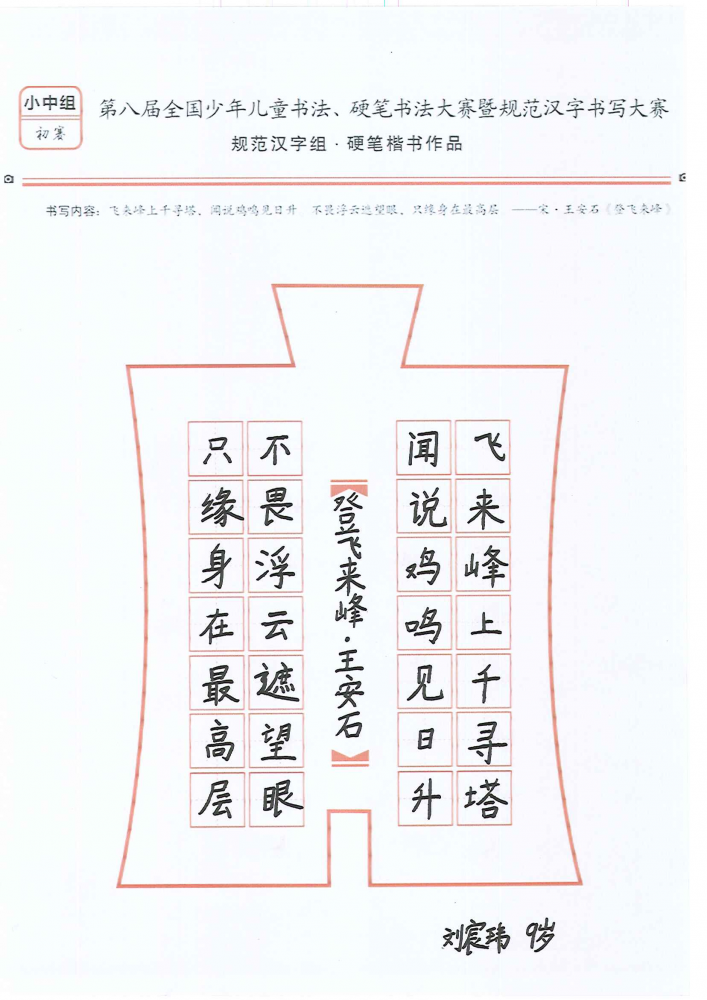 小中组
初赛
第八届全国少年儿童书法、硬笔书法大赛暨规范汉字书写大赛
规范汉字组·硬笔楷书作品
书写内容：飞来峰上千寻塔，闻说鸡鸣见日升。不畏浮云遮望眼，只缘身在最高层。——宋·王安石《登飞来峰》
飞来峰上千寻塔
闻说鸡鸣见日升
登飞来峰·王安石
不畏浮云遮望眼
只缘身在最高层
刘宸玮 9岁